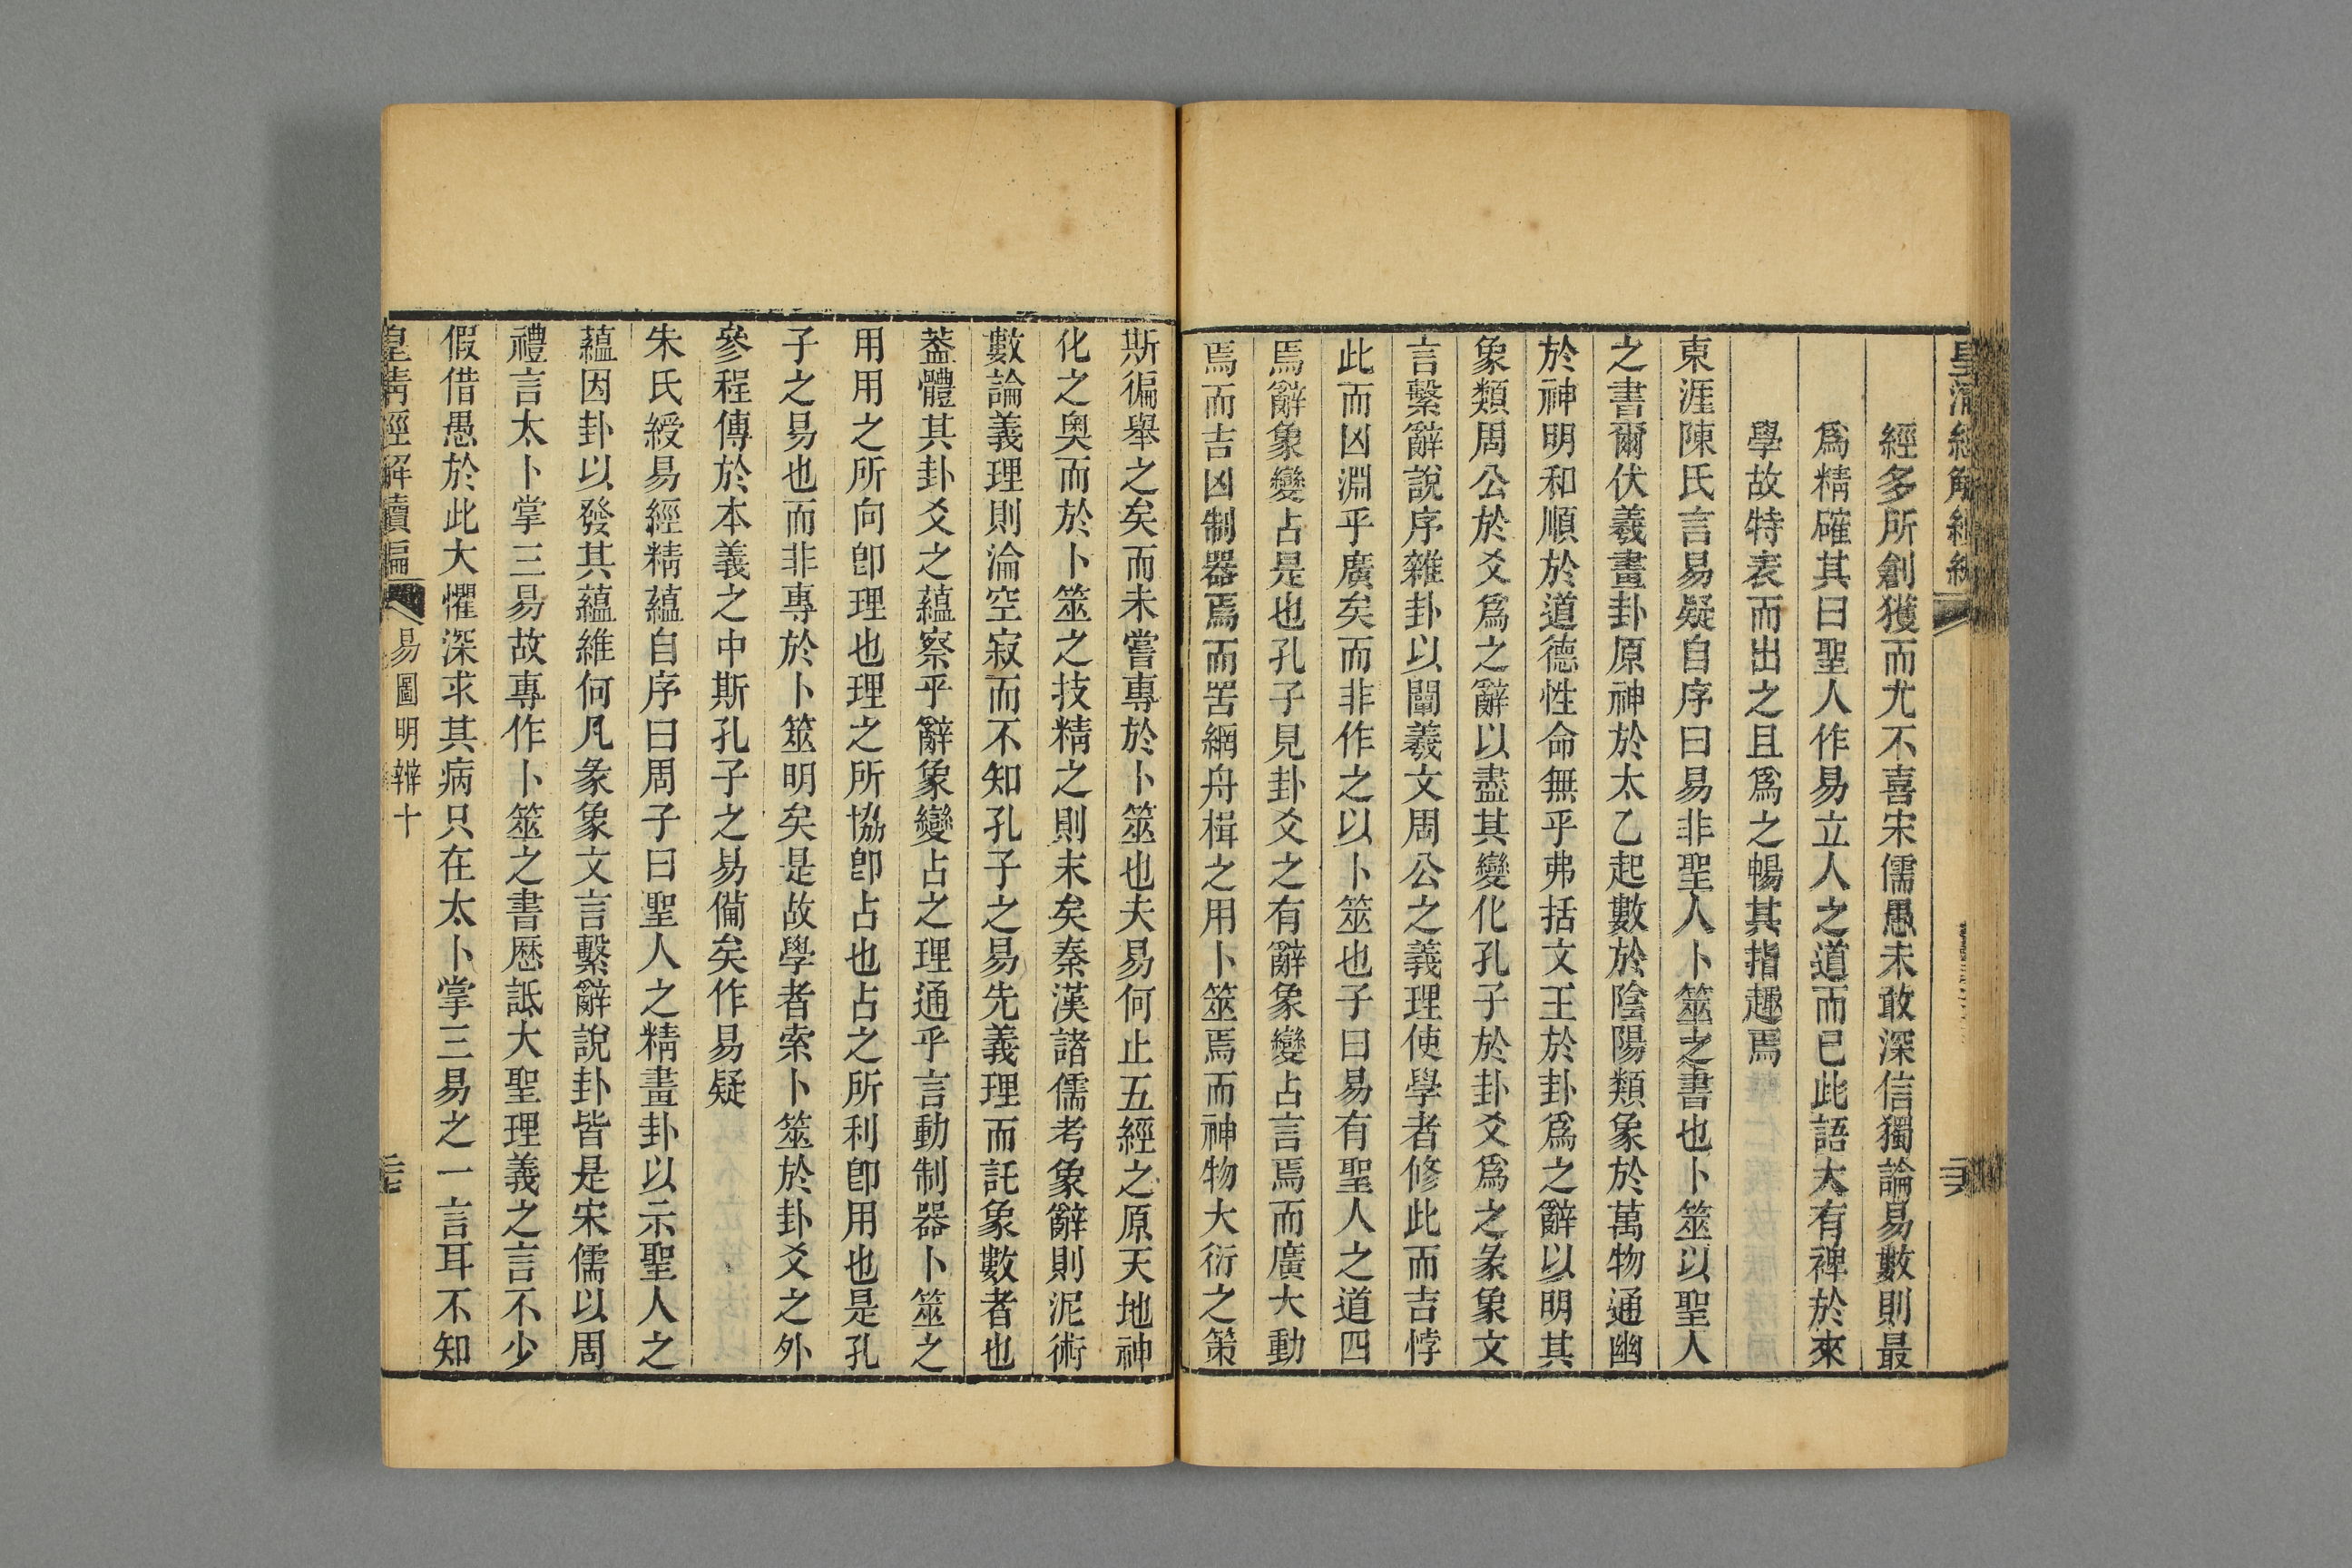 經多所創獲而尤不喜宋儒愚未敢深信獨論易數則最
爲精確其曰聖人作易立人之道而已此語大有裨於來
學故特表而出之且爲之暢其指趣焉
東涯陳氏言易疑自序曰易非聖人卜筮之書也卜筮以聖人
之書爾伏羲畫卦原神於太乙起數於陰陽類象於萬物通幽
於神明和順於道德性命無乎弗括文王於卦爲之辭以明其
象類周公於爻爲之辭以盡其變化孔子於卦爻爲之彖象文
言繫辭說序雜卦以闡羲文周公之義理使學者修此而吉悖
此而凶淵乎廣矣而非作之以卜筮也子曰易有聖人之道四
焉辭象變占是也孔子見卦爻之有辭象變占言焉而廣大動
焉而吉凶制器焉而罟網舟楫之用卜筮焉而神物大衍之策
斯徧舉之矣而未嘗專於卜筮也夫易何止五經之原天地神
化之奧而於卜筮之技精之則末矣秦漢諸儒考象辭則泥術
數論義理則淪空寂而不知孔子之易先義理而託象數者也
葢體其卦爻之蘊察乎辭象變占之理通乎言動制器卜筮之
用用之所向卽理也理之所協卽占也占之所利卽用也是孔
子之易也而非專於卜筮明矣是故學者索卜筮於卦爻之外
參程傳於本義之中斯孔子之易備矣作易疑
朱氏綬易經精蘊自序曰周子曰聖人之精畫卦以示聖人之
蘊因卦以發其蘊維何凡彖象文言繫辭說卦皆是宋儒以周
禮言太卜掌三易故專作卜筮之書厯詆大聖理義之言不少
假借愚於此大懼深求其病只在太卜掌三易之一言耳不知
皇清經解續編 易圖明辨十